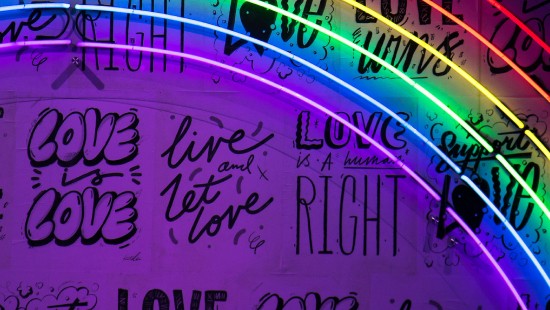 ove
RIGHT
LOVE
LOVE
wins
LOVE
is
LOVE
live
and
let
love
LOVE
IS A human
RIGHT
Support
LOVE
LOVE